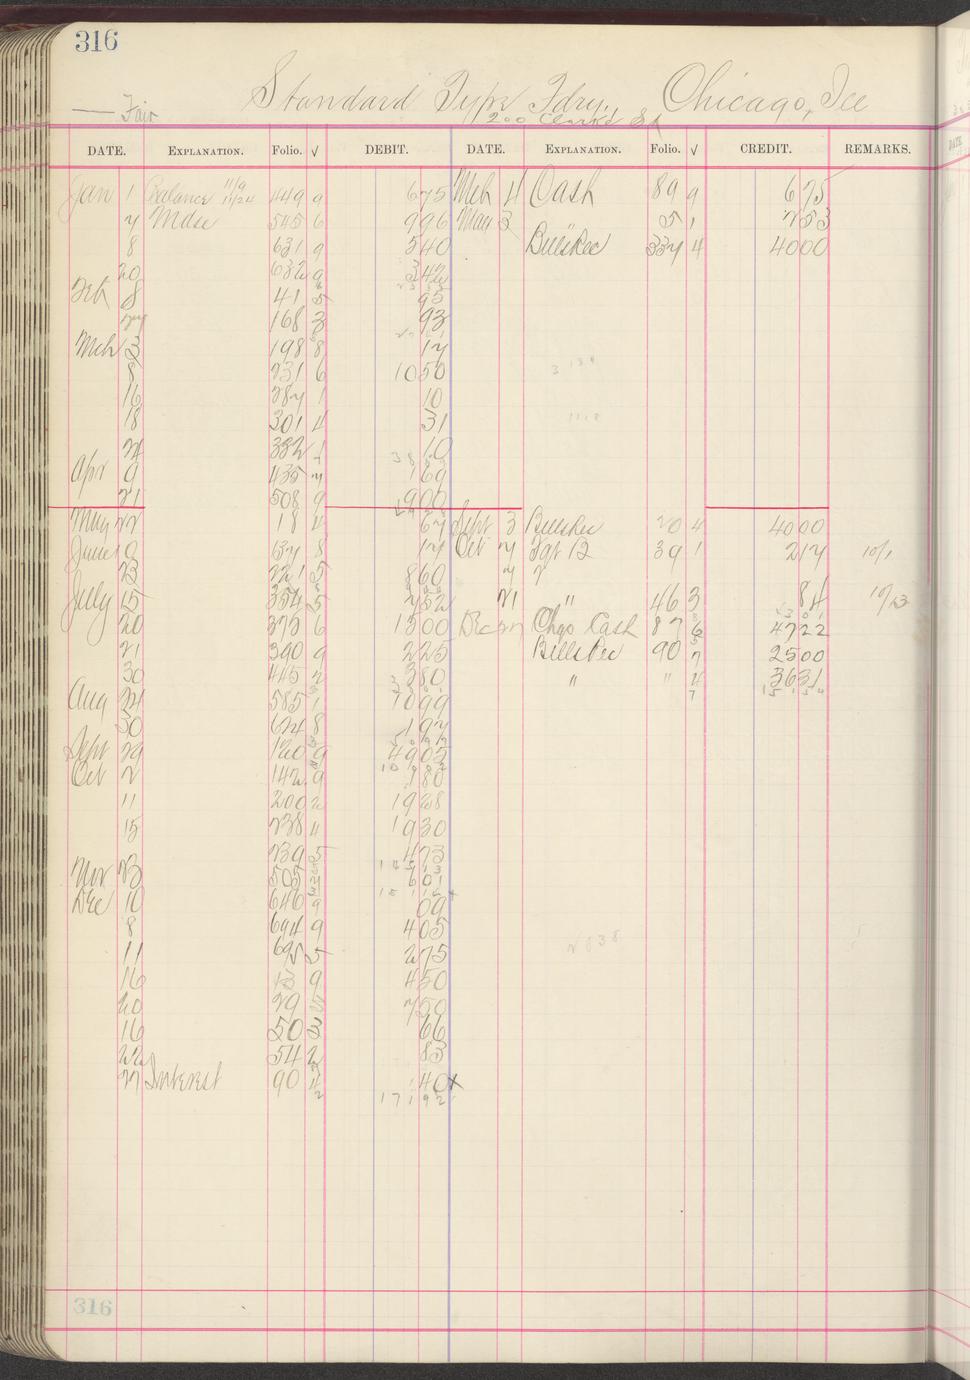 316
Standard Type Fdry. Chicago, Ill
Fair
200 Clark St
DATE. EXPLANATION. Folio. √ DEBIT. DATE. EXPLANATION. Folio. √ CREDIT. REMARKS.
Jan 1 Balance 11/9 11/24 449 9 675 Mch 4 Cash 89 9 675
Mdse 545 6 996 May 3 " 51 753
8 631 9 540 BillsRec 4 4000
20 632 9 342
Feb 8 41 5 95
168 3 93
Mch 3 198 8 17
8 231 6 1050
16 1 10
18 301 4 31
332 1 10
Apr 9 435 7 169
21 508 9 900
May 27 18 4 67 Sept 3 BillsRec 20 4 4000
June 9 137 8 17 Oct 7 39 1 217 10/1
23 221 5 860 7
July 15 354 5 752 21 " 46 3 84 10/23
20 373 6 1500 Dec 27 Chgo Cash 87 6 4722
21 390 9 225 BillsRec 90 7 2500
30 445 2 380 " " 4 3631
Aug 24 585 1 7099
30 624 8 197
Sept 29 120 9 4905
Oct 2 142 9 180
11 200 2 1938
15 238 4 1930
239 5 473
Nov 23 505 601
Dec 10 646 9 09
8 694 9 405
11 695 5 275
16 13 9 450
20 29 750
16 50 3 66
22 54 2 83
27 Interest 90 4 40 x
17192
316